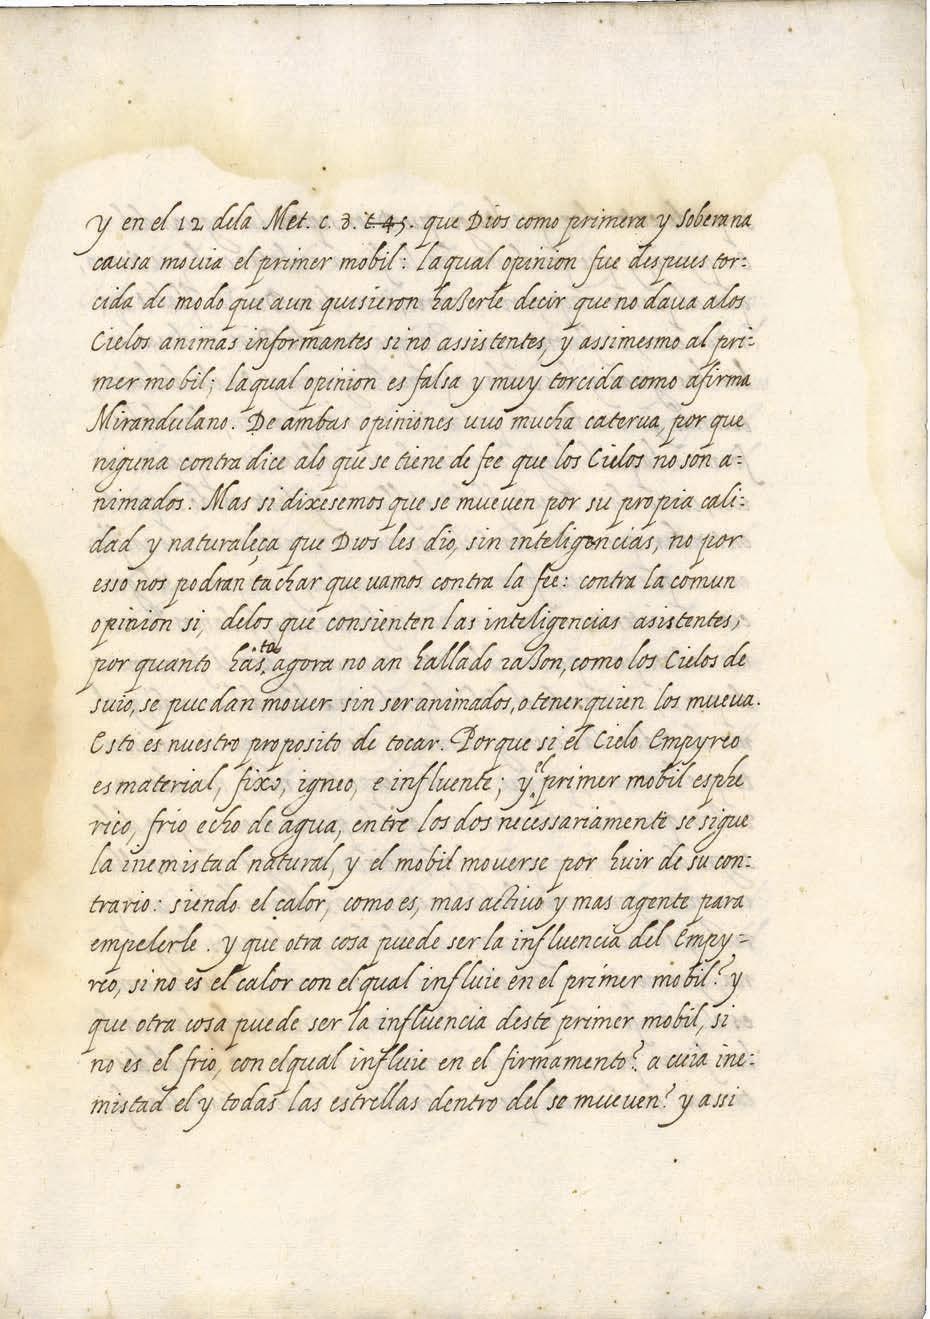 y en el 12 dela Met. c. 8. t. 45. que Dios como primera y soberana
causa mouia el primer mobil: laqual opinion fue despues tor:
cida de modo que aun quisieron haserle decir que no daua alos
Cielos animas informantes sino assistentes, y assimesmo al pri:
mer mobil; laqual opinion es falsa y muy torcida como afirma
Mirandulano. De ambas opiniones uuo mucha caterua, por que
niguna contradice alo que se tiene de fee que los Cielos no son a:
nimados. Mas si dixesemos que se mueuen por su propia cali:
dad y naturaleça que Dios les dio, sin inteligencias, no por
esso nos podran tachar que uamos contra la fee: contra la comun
opinion si, delos que consienten las inteligencias asistentes,
por quanto hasta agora no an hallado rason, como los Cielos de
suio, se puedan mouer sin ser animados, o tener quien los mueua.
Esto es nuestro proposito de tocar. Porque si el Cielo Empyreo
es material, fixo, igneo, e influente; y el primer mobil esphe
rico, frio echo de agua, entre los dos necessariamente se sigue
la inemistad natural, y el mobil mouerse por huir de su con:
trario: siendo el calor, como es, mas actiuo y mas agente para
empelerle. y que otra cosa puede ser la influencia del Empy=
reo, si no es el calor con el qual influie en el primer mobil? y
que otra cosa puede ser la influencia deste primer mobil, si
no es el frio, con elqual influie en el firmamento? a cuia ine:
mistad el y todas las estrellas dentro del se mueuen? y assi